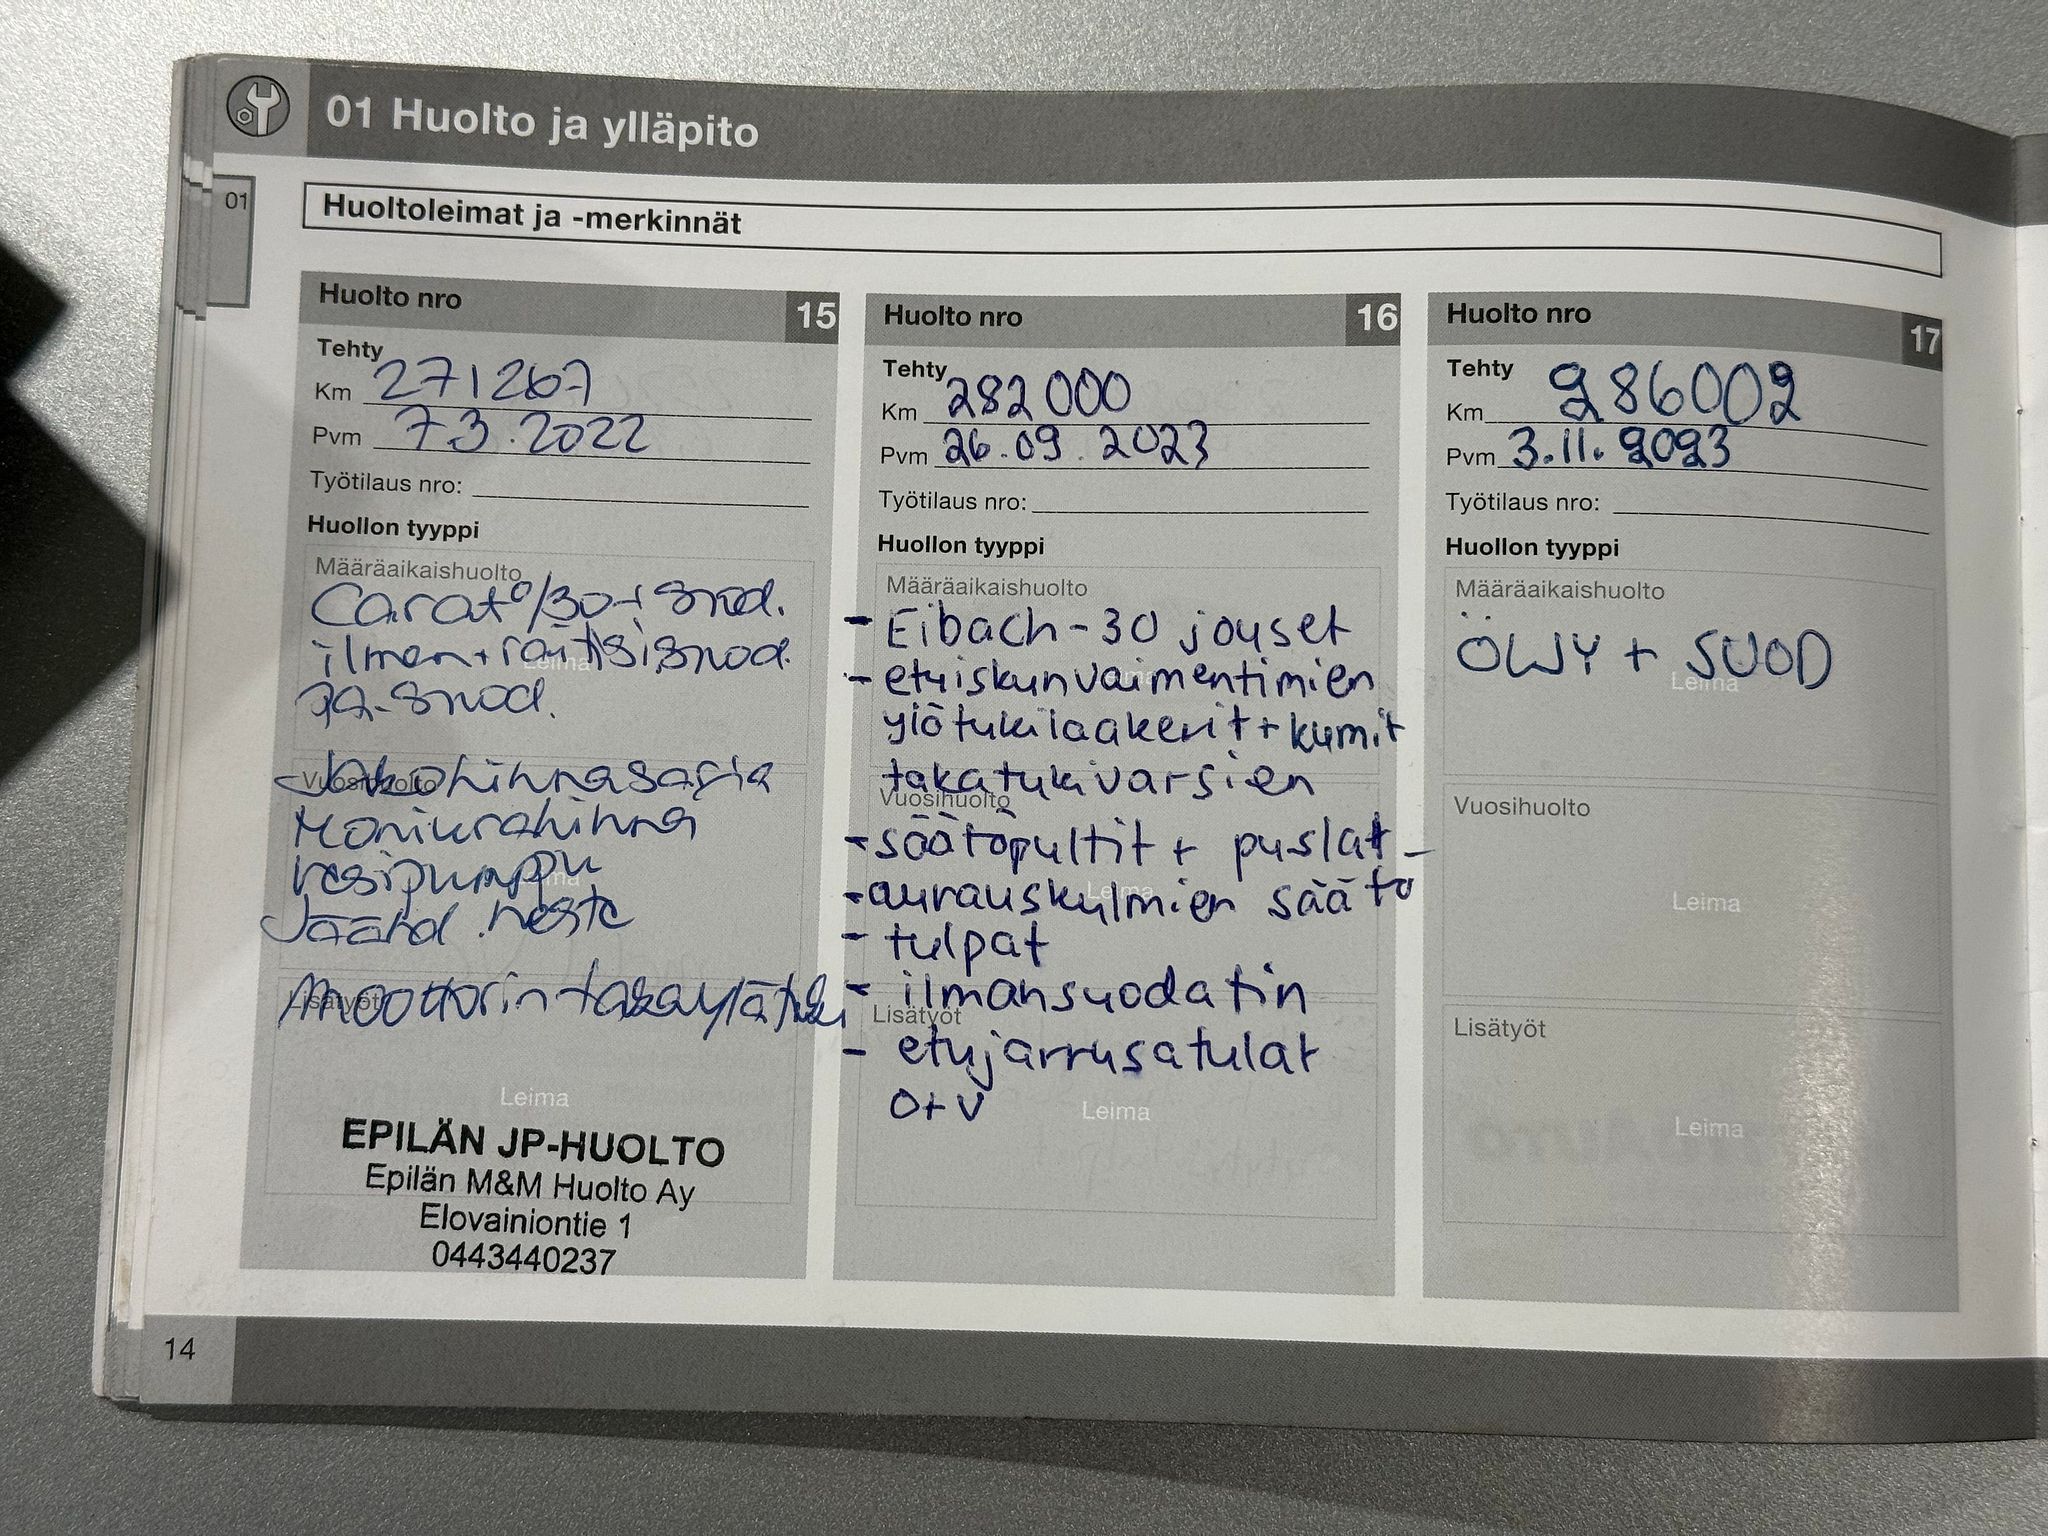 01 Huolto ja ylläpito
01
Huoltoleimat ja -merkinnät
Huolto nro 15
Tehty
Km 271267
Pvm 7.3.2022
Työtilaus nro:
Huollon tyyppi
Määräaikaishuolto
Carat 0/30+suod.
ilman+raitisi.suod.
pa-suod.
Leima
Vuosihuolto
Jakohihnasarja
Moniurahihna
vesipumppu
Jäähd.neste
Leima
Lisätyöt
Moottorin takaylätuki
Leima
EPILÄN JP-HUOLTO
Epilän M&M Huolto Ay
Elovainiontie 1
0443440237
Huolto nro 16
Tehty
Km 282000
Pvm 26.09.2023
Työtilaus nro:
Huollon tyyppi
Määräaikaishuolto
- Eibach -30 jouset
- etuiskunvaimentimien
ylötukilaakerit + kumit
Leima
takatukivarsien
Vuosihuolto
- säätöpultit + puslat -
- aurauskulmien säätö
Leima
- tulpat
- ilmansuodatin
Lisätyöt
- etujarrusatulat
O+V
Leima
Huolto nro 17
Tehty
Km 286002
Pvm 3.11.2023
Työtilaus nro:
Huollon tyyppi
Määräaikaishuolto
ÖLJY + SUOD
Leima
Vuosihuolto
Leima
Lisätyöt
Leima
14